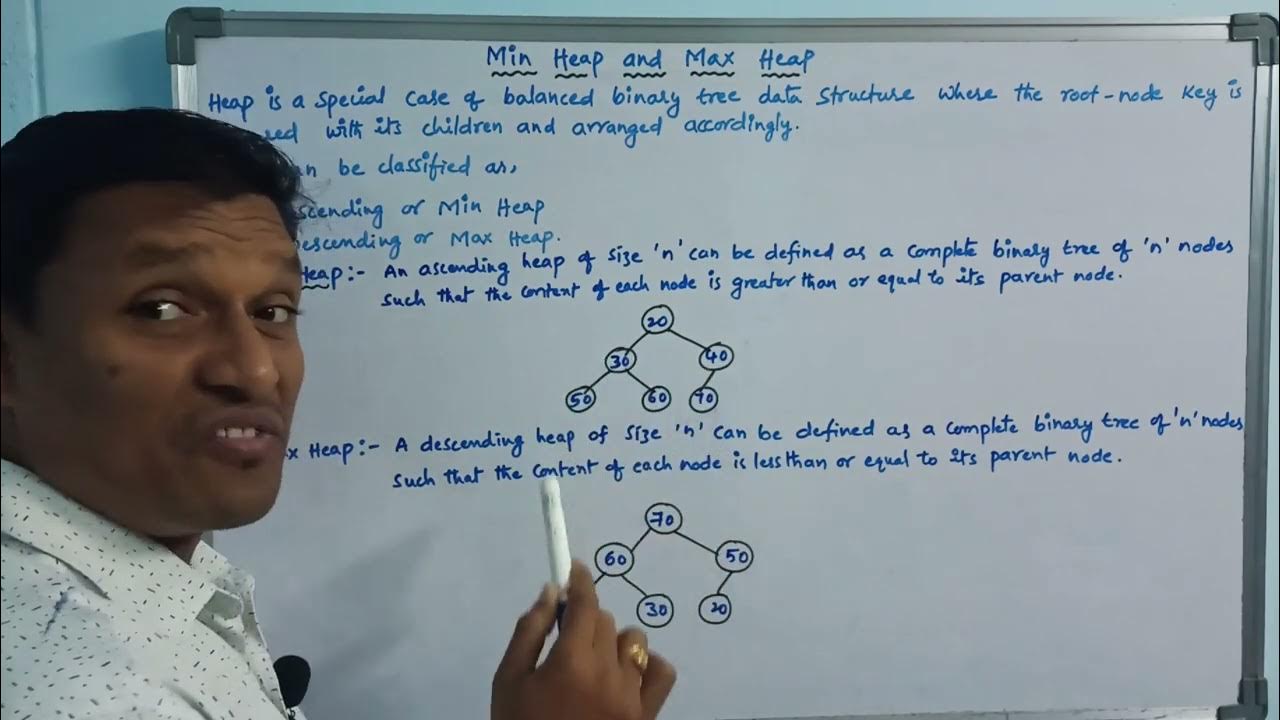 Min Heap and Max Heap
Heap is a special case of balanced binary tree data structure where the root-node key is
with its children and arranged accordingly.
be classified as,
or Min Heap
or Max Heap.
Heap:- An ascending heap of size 'n' can be defined as a complete binary tree of 'n' nodes
such that the content of each node is greater than or equal to its parent node.
20
30 40
50 60 70
Heap:- A descending heap of size 'n' can be defined as a complete binary tree of 'n' nodes
such that the content of each node is less than or equal to its parent node.
70
60 50
30 20